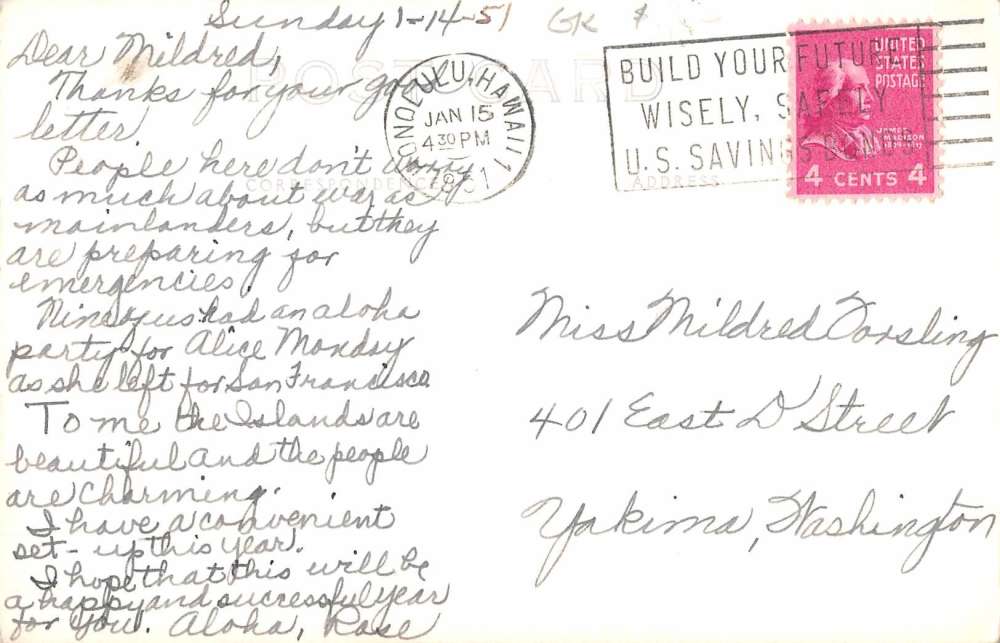 Sunday 1-14-51
GK $
Dear Mildred,
Thanks for your good
letter.
People here don't worry
as much about war as
mainlanders, but they
are preparing for
emergencies.
Nine of us had an aloha
party for Alice Monday
as she left for San Francisco.
To me the Islands are
beautiful and the people
are charming.
I have a convenient
set-up this year.
I hope that this will be
a happy and successful year
for you. Aloha, Rose
POST CARD
CORRESPONDENCE
ADDRESS
HONOLULU, HAWAII 1
JAN 15
4 30 PM
1951
BUILD YOUR FUTURE
WISELY, SAFELY
U.S. SAVINGS BONDS
UNITED
STATES
POSTAGE
JAMES
MADISON
1809-1817
4 CENTS 4
Miss Mildred Forsling
401 East D Street
Yakima, Washington